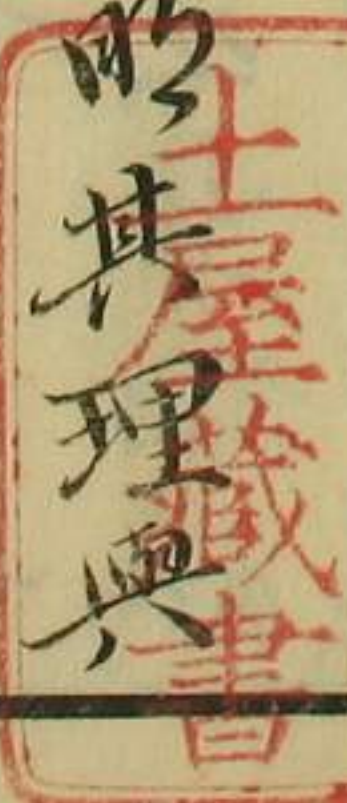 明其理與
土屋藏書